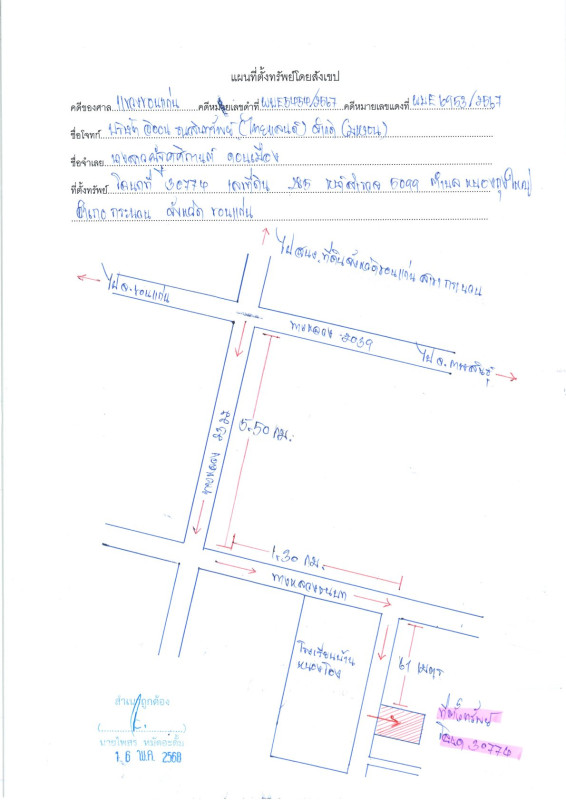 แผนที่ตั้งทรัพย์โดยสังเขป
คดีของศาล แขวงขอนแก่น คดีหมายเลขดำที่ คดีหมายเลขแดงที่ ผบE 6953/2567
ชื่อโจทก์ บริษัท อิออน ธนสินทรัพย์ (ไทยแลนด์) จำกัด (มหาชน)
ชื่อจำเลย นางสาว ดอนเมือง
ที่ตั้งทรัพย์ โฉนดที่ 30774 เลขที่ดิน 265 หน้าสำรวจ 5099 ตำบล หนองกุงใหญ่
อำเภอ กระนวน จังหวัด ขอนแก่น
ไปสนง.ที่ดินจังหวัดขอนแก่น สาขากระนวน
ไป จ.ขอนแก่น
ทางหลวง 2039
ไป จ.กาฬสินธุ์
5.50 กม.
ทางหลวง
1.30 กม.
ทางหลวงชนบท
โรงเรียนบ้าน
หนองโอง
61 เมตร
ที่ตั้งทรัพย์
โฉนด 30774
สำเนาถูกต้อง
16 พ.ค. 2568